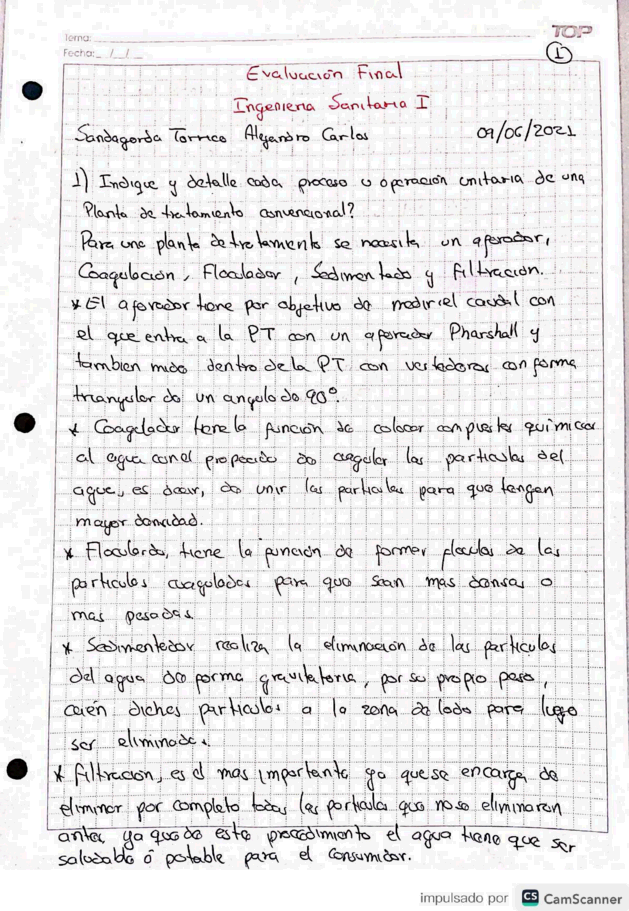 Tema:
TOP
Fecha: / /
1
Evaluación Final
Ingenieria Sanitaria I
Sandagorda Torrico Alejandro Carlos 09/06/2021
1) Indique y detalle cada proceso u operación unitaria de una
Planta de tratamiento convencional?
Para una planta de tratamiento se necesita un aforador,
Coagulación, Floculador, Sedimentado y filtración.
* El aforador tiene por objetivo de medir el caudal con
el que entra a la PT con un aforador Pharshall y
tambien mide dentro de la PT con vertedoras con forma
triangular de un angulo de 90°.
* Coagulador tiene la función de colocar compuestos quimicos
al agua con el proposito de coagular las particulas del
agua, es decir, de unir las particulas para que tengan
mayor densidad.
* Floculardor, tiene la función de formar floculos de las
particulas coaguladas para que sean mas densas o
mas pesadas.
* Sedimentador realiza la eliminación de las particulas
del agua de forma gravitatoria, por su propio peso,
caén dichas particulas a la zona de lodo para luego
ser eliminados.
* filtración, es el mas importante ya que se encarga de
eliminar por completo todas las particula que no se eliminaron
antes, ya que de este procedimiento el agua tiene que ser
saludable o potable para el consumidor.
impulsado por CS CamScanner